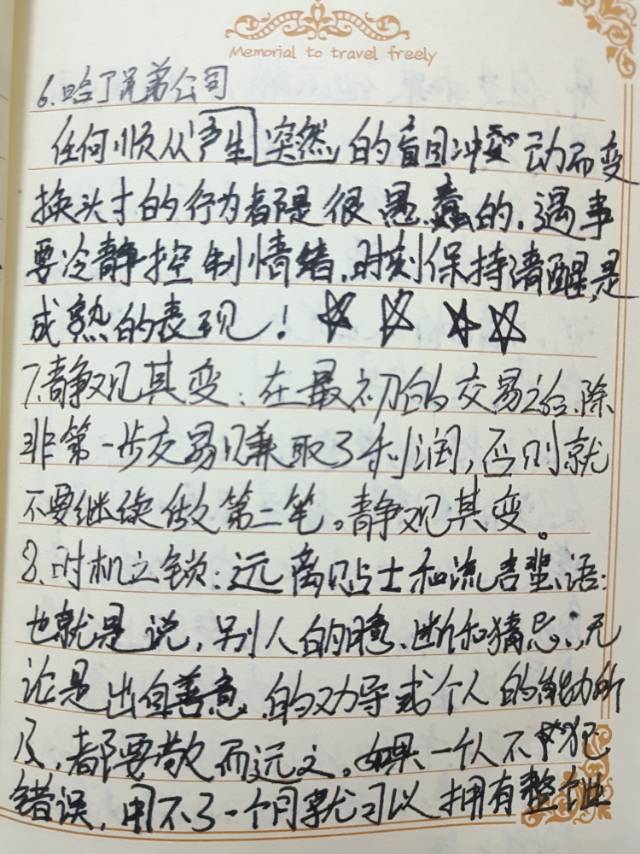 Memorial to travel freely
6.哈了兄弟公司
任何顺从产生突然的盲目冲动而变
换头寸的行为都是很愚蠢的.遇事
要冷静控制情绪,时刻保持清醒,是
成熟的表现!☆☆☆☆
7.静观其变:在最初的交易之后,除
非第一步交易赚取了利润,否则就
不要继续做第二笔。静观其变。
8.时机之锁:远离贴士和流言蜚语:
也就是说,别人的臆断和猜忌,无
论是出自善意的劝导或个人的能力所
及,都要敬而远之。如果一个人不犯
错误,用不了一个月就可以拥有整个世